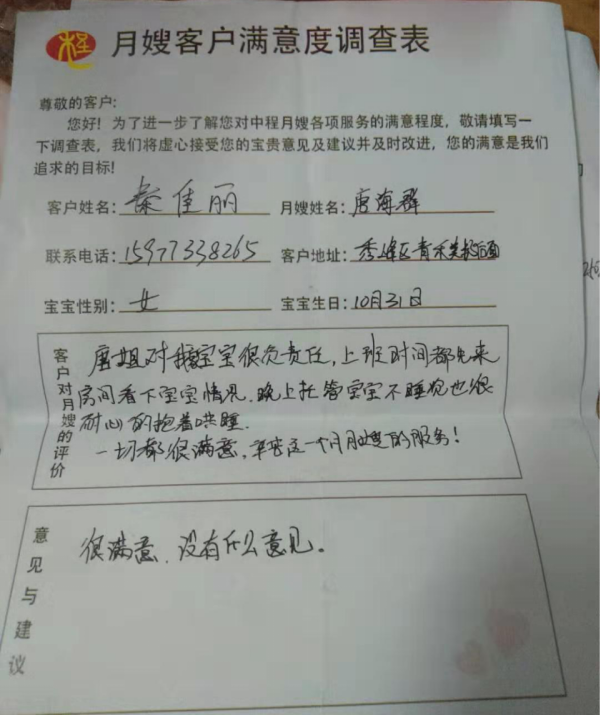 程
月嫂客户满意度调查表
尊敬的客户:
您好! 为了进一步了解您对中程月嫂各项服务的满意程度, 敬请填写一
下调查表, 我们将虚心接受您的宝贵意见及建议并及时改进, 您的满意是我们
追求的目标!
客户姓名: 秦佳丽 月嫂姓名: 唐海群
联系电话: 15977338265 客户地址: 秀峰区青禾美邦后面
宝宝性别: 女 宝宝生日: 10月31日
客户对月嫂的评价
唐姐对我宝宝很负责任, 上班时间都先来
房间看下宝宝情况. 晚上托管宝宝不睡觉也很
耐心的抱着哄睡.
一切都很满意, 这一个月月嫂的服务!
意见与建议
很满意, 没有什么意见。